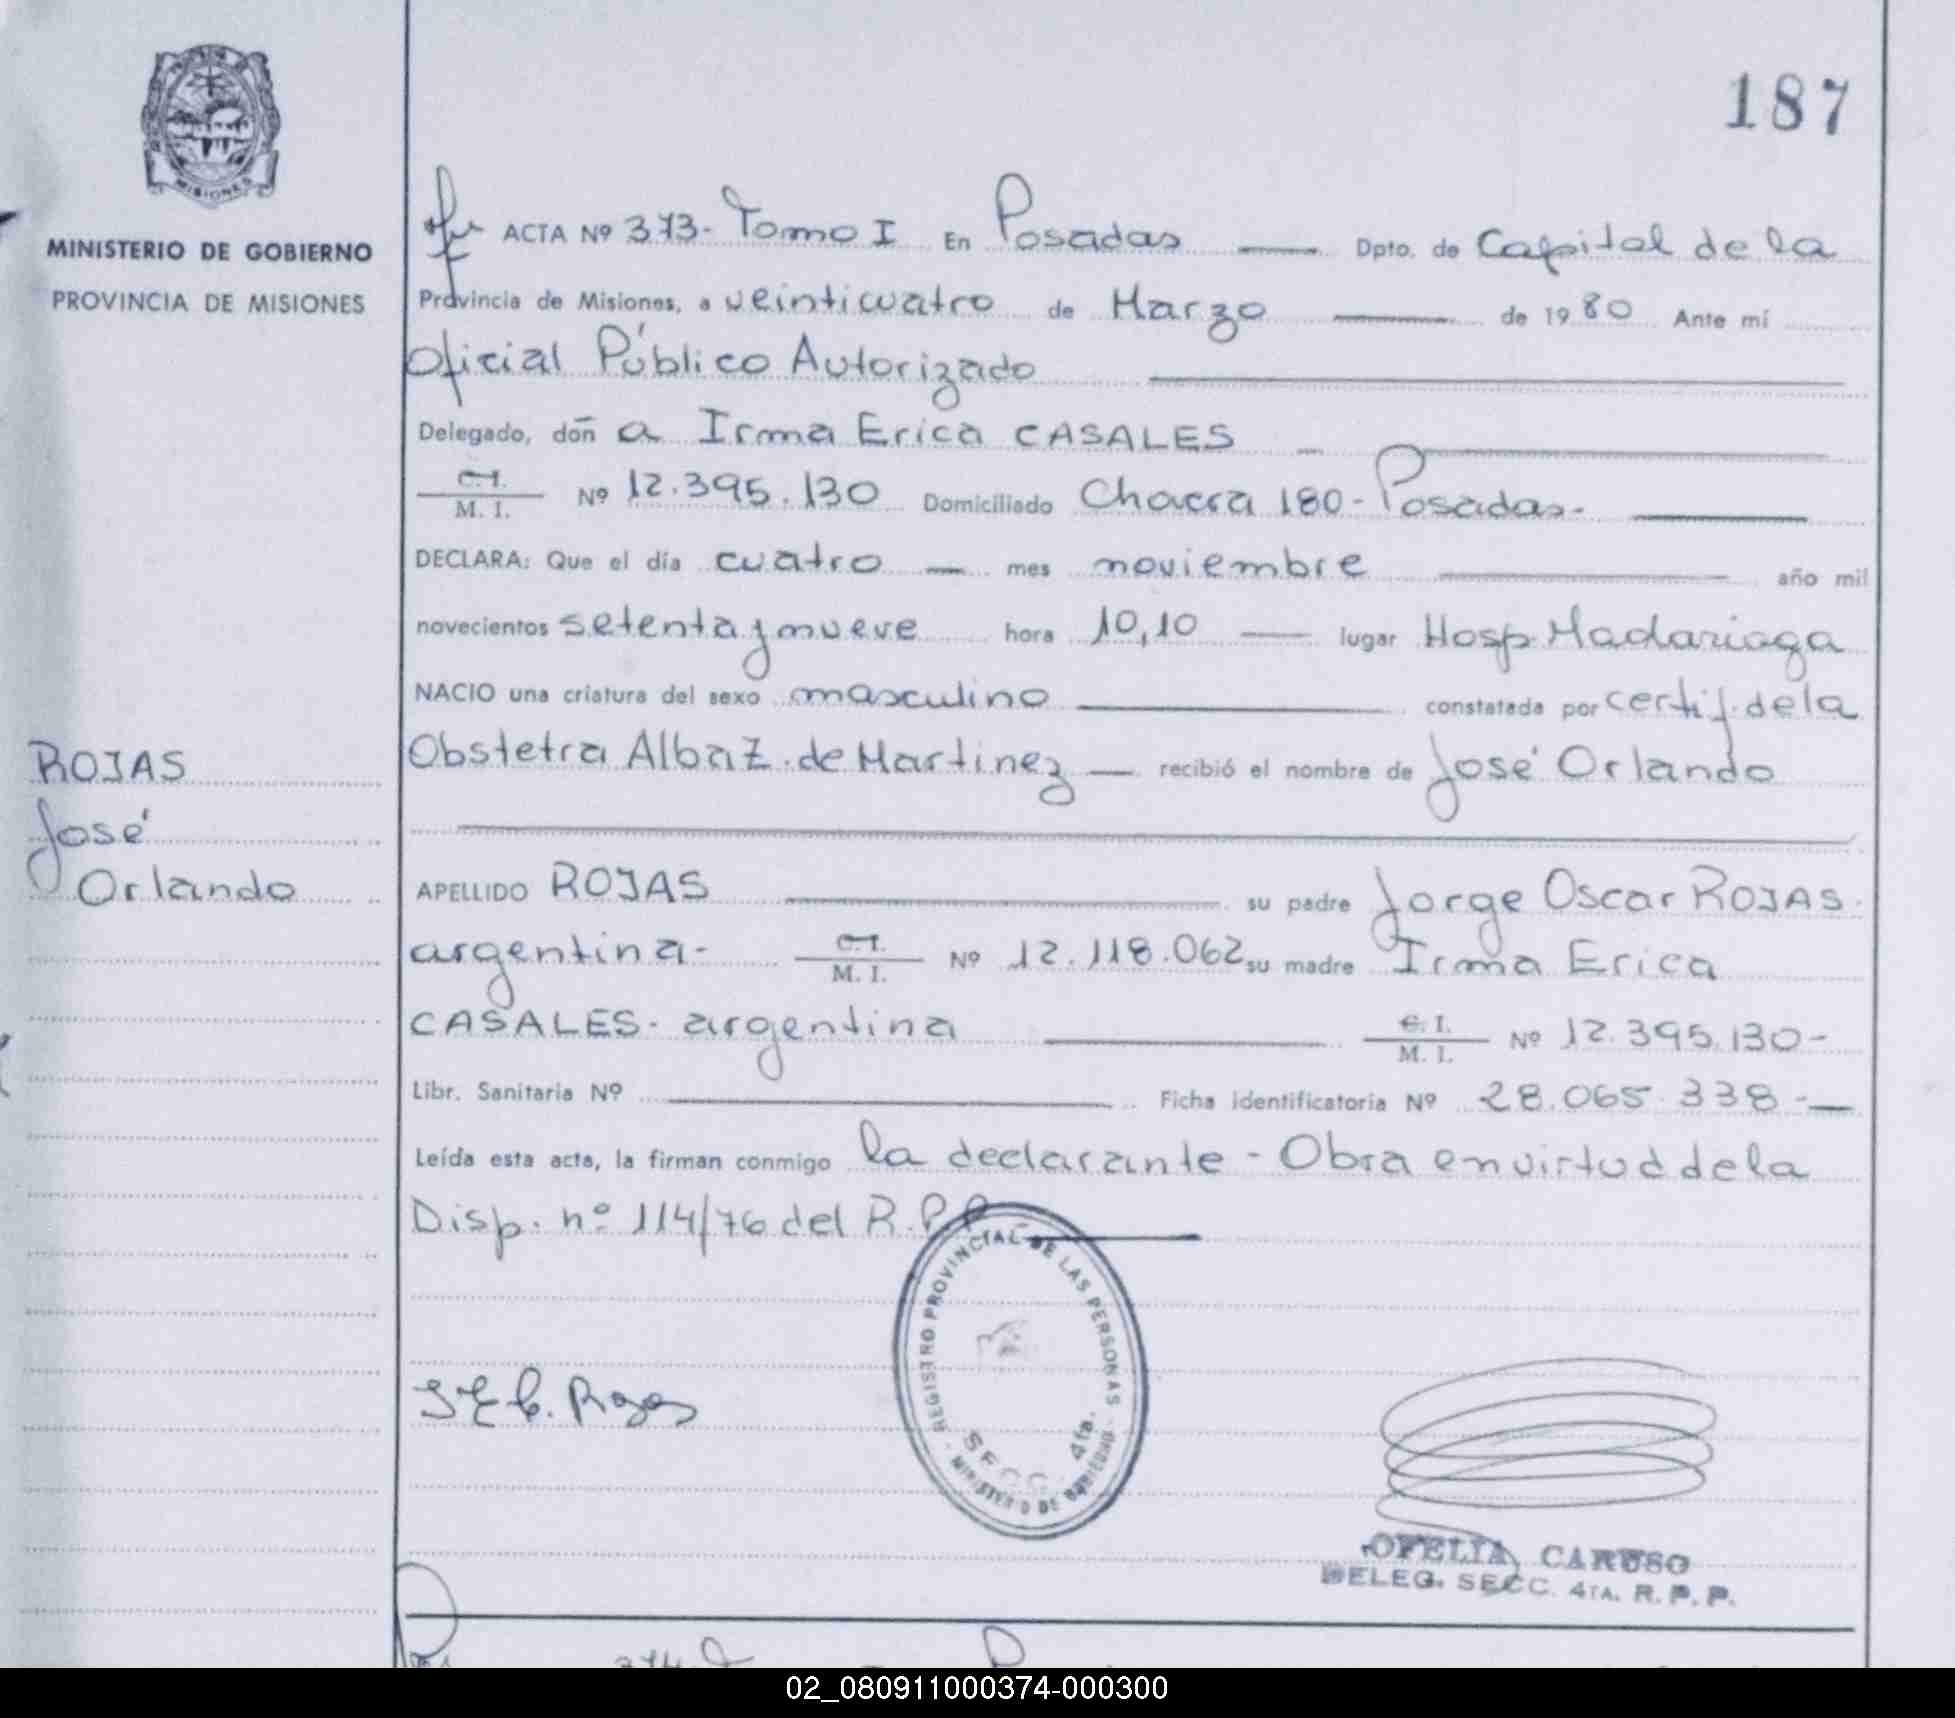 187
MISIONES
MINISTERIO DE GOBIERNO
PROVINCIA DE MISIONES
ROJAS
José
Orlando
ACTA Nº 373- Tomo I En Posadas Dpto. de Capital de la
Provincia de Misiones, a veinticuatro de Marzo de 1980 Ante mí
Oficial Público Autorizado
Delegado, don a Irma Erica CASALES
C.I. / M. I. Nº 12.395.130 Domiciliado Chacra 180 - Posadas-
DECLARA: Que el día cuatro mes noviembre año mil
novecientos setenta y nueve hora 10,10 lugar Hosp. Madariaga
NACIO una criatura del sexo masculino constatada por certif. de la
Obstetra Alba Z. de Martinez recibió el nombre de José Orlando
APELLIDO ROJAS su padre Jorge Oscar ROJAS.
argentina- C.I. / M. I. Nº 12.118.062 su madre Irma Erica
CASALES- argentina C. I. / M. I. Nº 12.395.130-
Libr. Sanitaria Nº Ficha identificatoria Nº 28.065.338-
Leída esta acta, la firman conmigo la declarante - Obra en virtud de la
Disp. nº 114/76 del R.P.P.
REGISTRO PROVINCIAL DE LAS PERSONAS
SECC. 4ta.
MINISTERIO DE
Rojas
OFELIA CARUSO
DELEG. SECC. 4TA. R. P. P.
374
02_080911000374-000300